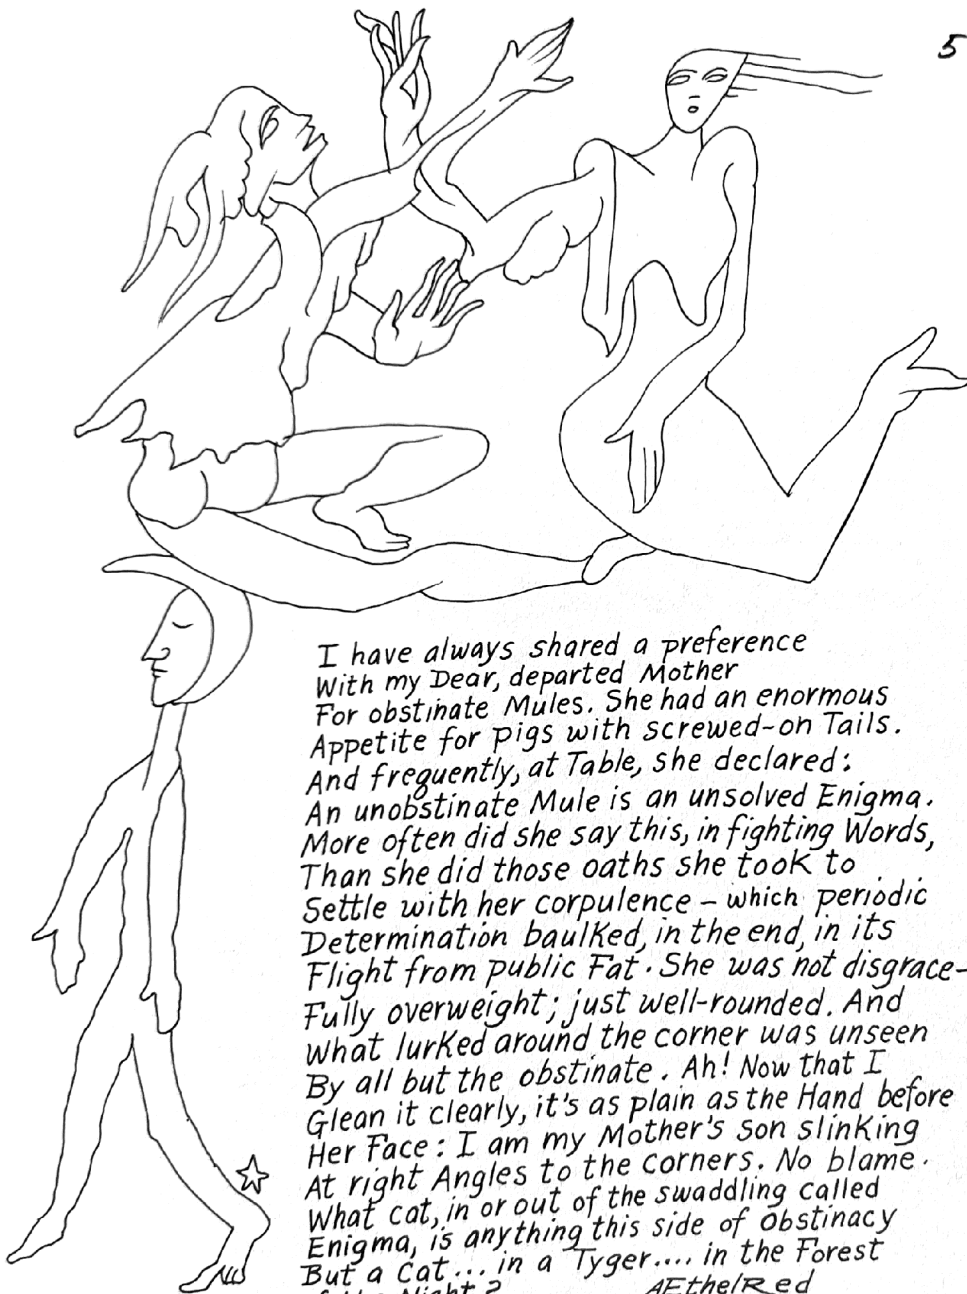 5
I have always shared a preference
With my Dear, departed Mother
For obstinate Mules. She had an enormous
Appetite for pigs with screwed-on Tails.
And frequently, at Table, she declared:
An unobstinate Mule is an unsolved Enigma.
More often did she say this, in fighting Words,
Than she did those oaths she took to
Settle with her corpulence – which periodic
Determination baulked, in the end, in its
Flight from public Fat. She was not disgrace-
Fully overweight; just well-rounded. And
What lurked around the corner was unseen
By all but the obstinate. Ah! Now that I
Glean it clearly, it's as plain as the Hand before
Her Face: I am my Mother's son slinking
At right Angles to the corners. No blame.
What cat, in or out of the swaddling called
Enigma, is anything this side of Obstinacy
But a Cat... in a Tyger.... in the Forest
of the Night?
AEthelRed